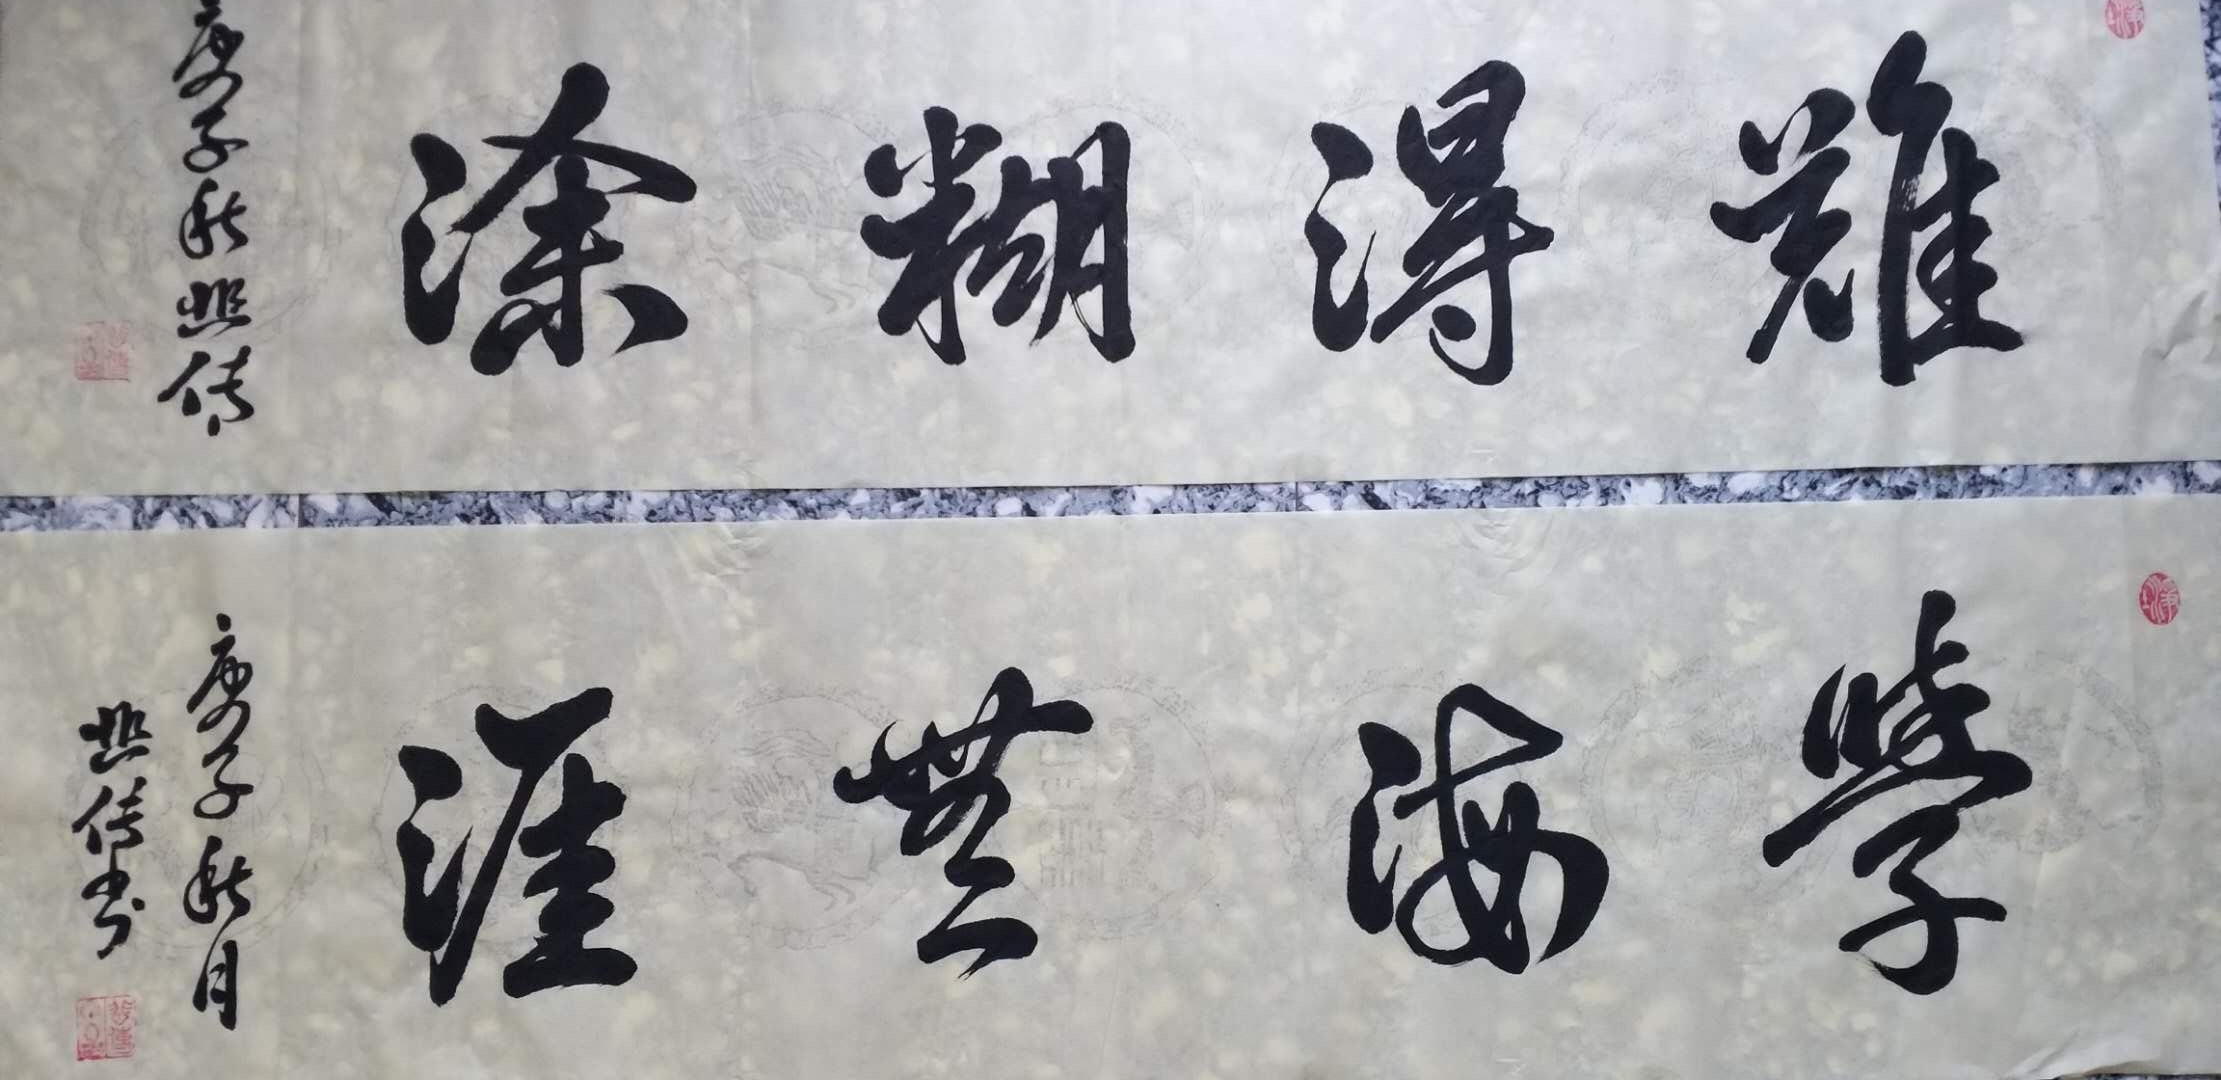 難得糊涂
庚子秋
學海無涯
庚子秋月